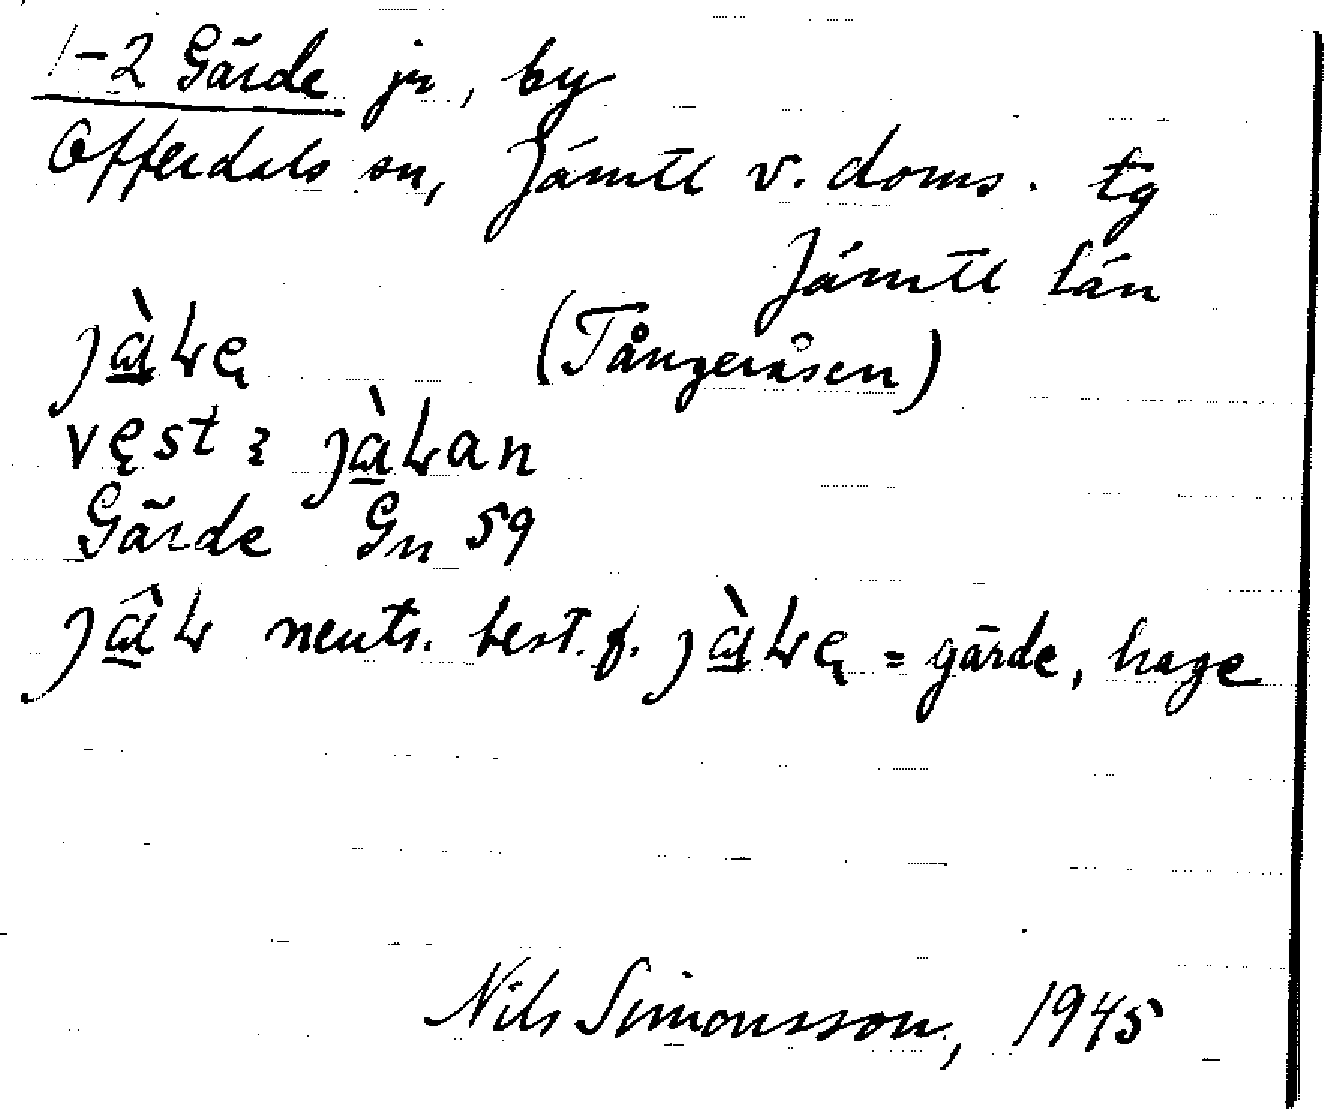 1-2 Gärde jr, by
Offerdals sn, Jämtl v. doms. tg
Jämtl län
(Tångeråsen)
vęst
Gärde Gn 59
neutr. best. f. = gärde, hage
Nils Simonsson, 1945